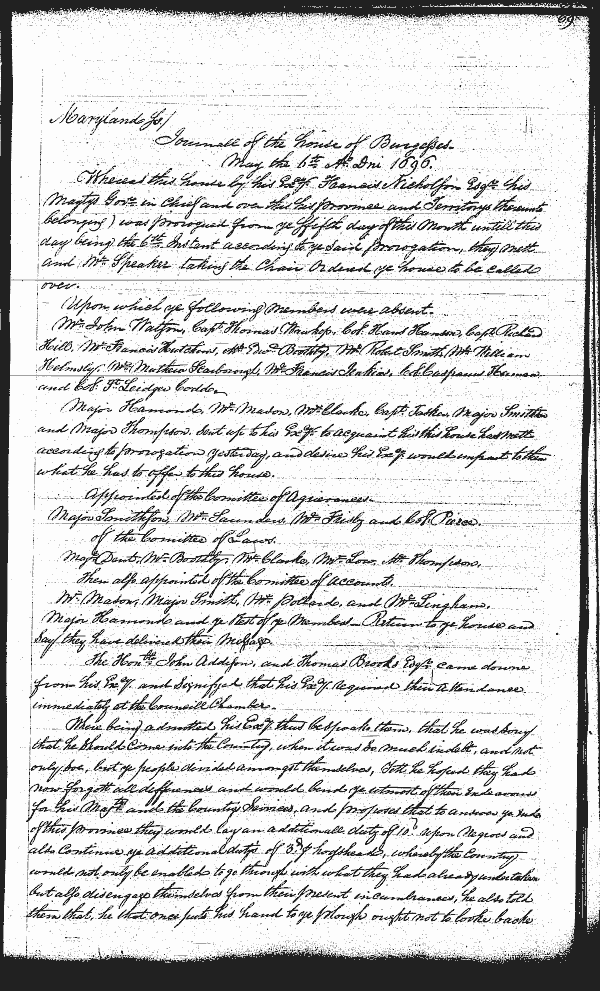 69
Maryland Ss/
Journall of the house of Burgesses.
May the 6th Ao Dni 1696.
Whereas this house by his Exy. Francis Nicholson Esqr. his
Majtys Govr. in Cheif and over this his province and Territorys thereunto
belonging) was prorogued from ye ffifth day of this Month untill this
day being the 6th Instant according to ye said prorogation, they mett
and Mr. Speaker taking the Chair Ordered ye house to be called
over.
Upon which ye following Members were absent.
Mr. John Watson, Capt. Thomas Col. Hans Hanson, Capt. Richard
Hill, Mr. Francis Hutchins, Mr. Edwd. Boothby, Mr. Robt. Smith, Mr. William
Helmsly, Mr. Mathew Scarborough, Mr. Francis Jenkins, Col. Casparus Herman
and Col. St. Leidger Codd.
Major Hamond, Mr. Mason, Mr. Clarke, Capt. Tasker, Major Smithson
and Major Thompson. Sent up to his Exy. to acquaint his this house has mett
according to prorogation yesterday, and desire his Exy. would impart to them
what he has to offer to this house.
Appointed of the Comittee of Agrievances.
Major Smithson, Mr. Saunders, Mr. Frisby and Col. Pearce.
of the Comittee of Laws.
Majr. Dent, Mr. Boothby, Mr. Clarke, Mr. Low, Mr. Thompson.
Then also appointed of the Comittee of Accounts.
Mr. Mason, Major Smith, Mr. Pollard, and Mr. Lingham.
Major Hamond and ye Rest of ye Members Return to ye house and
say they have delivered their Message.
The Honble John Addison, and Thomas Brooke Esqrs. came downe
from his Exy. and signifyed that his Exy. required their Attendance
immediately at the Councill Chamber.
Where being admitted his Exy. thus bespoake them, that he was sorry
that he should come into the Country, when it was so much indebt, and not
only soe, but ye people divided amongst themselves, Yett he hoped they had
now forgott all differences and would bend ye utmost of their Indeavours
for his Majtys and the Country Services, and proposes that to answer ye ends
of this province they would lay an additionall duty of 10s. upon Negroes and
also Continue ye additional dutys of 3d. p hogshead, whereby the Country
would not only be enabled to go through with what they had already undertaken
but also disengage themselves from their present incumbrances, he also told
them that, he that once puts his hand to ye plough ought not to looke backe